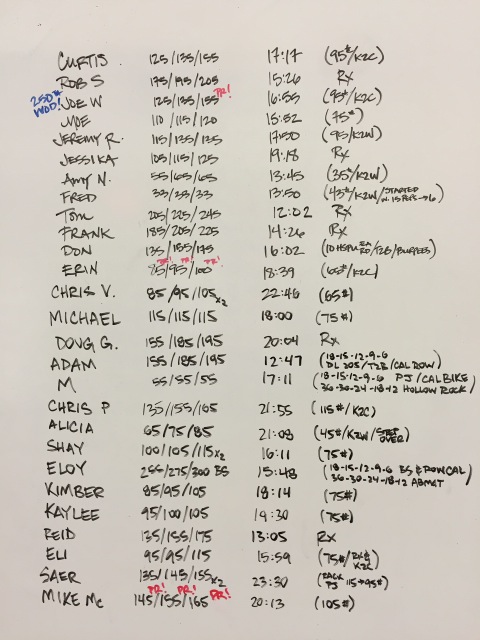 CURTIS 125/135/155 17:17 (95#/K2C)
ROB S 175/195/205 15:26 Rx
250# WOD! JOE W 125/135/155 PR! 16:55 (95#/K2C)
MOE 110/115/120 15:52 (75#)
JEREMY R. 115/135/135 17:50 (95/K2W)
JESSIKA 105/115/125 19:18 Rx
AMY N. 55/65/65 13:45 (35#/K2W)
FRED 33/33/33 13:50 (43#/K2W/STARTED
Tom 205/225/245 12:02 Rx
FRANK 185/205/225 14:26 Rx
DON 135/155/175 16:02 (10 HSPU EA RD/T2B/BURPEES)
ERIN 85/95/100 PR! PR! PR! 18:39 (65#/K2C)
CHRIS V. 85/95/105x2 22:46 (65#)
MICHAEL 115/115/115 18:00 (75#)
DOUG G. 155/185/195 20:04 Rx
ADAM 155/185/195 12:47 (18-15-12-9-6 DL 205/T2B/CAL ROW)
M 55/55/55 17:11 (18-15-12-9-6 PJ/CAL BIKE 36-30-24-18-12 HOLLOW ROCK)
CHRIS P 135/155/165 21:55 (115#/K2C)
ALICIA 65/75/85 21:08 (45#/K2W/STEP OVER)
SHAY 100/105/115x2 16:11 (75#)
ELOY 255/275/300 BS 15:48 (18-15-12-9-6 BS & ROW CAL 36-30-24-18-12 ABMAT)
KIMBER 85/95/105 18:14 (75#)
KAYLEE 95/100/105 19:30 (75#)
REID 135/155/175 13:05 Rx
ELI 95/95/115 15:59 (75#/K2C)
SAER 135/145/155x2 23:30 (RACK PJ 115→95#)
MIKE Mc 145/155/165 PR! PR! PR! 20:13 (105#)